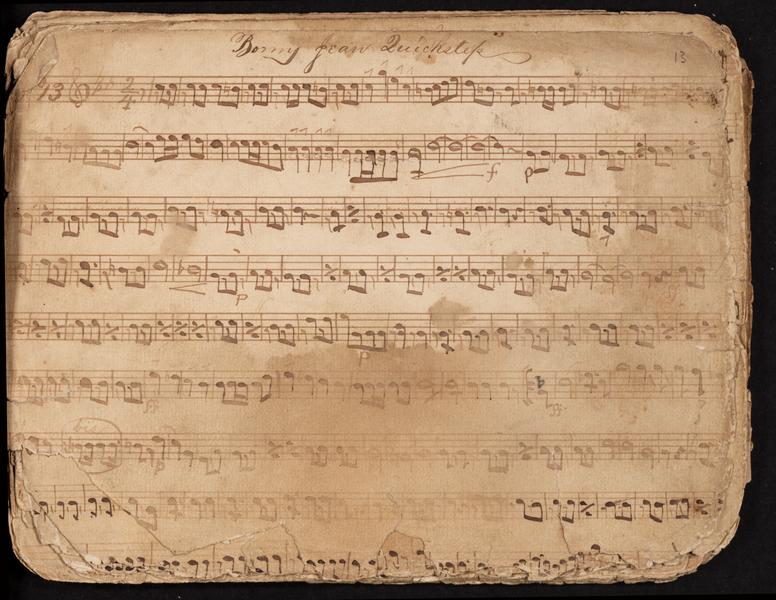 Bonny Jean Quickstep
13
13 2/4
f p
p
p
ff ff
bis
p